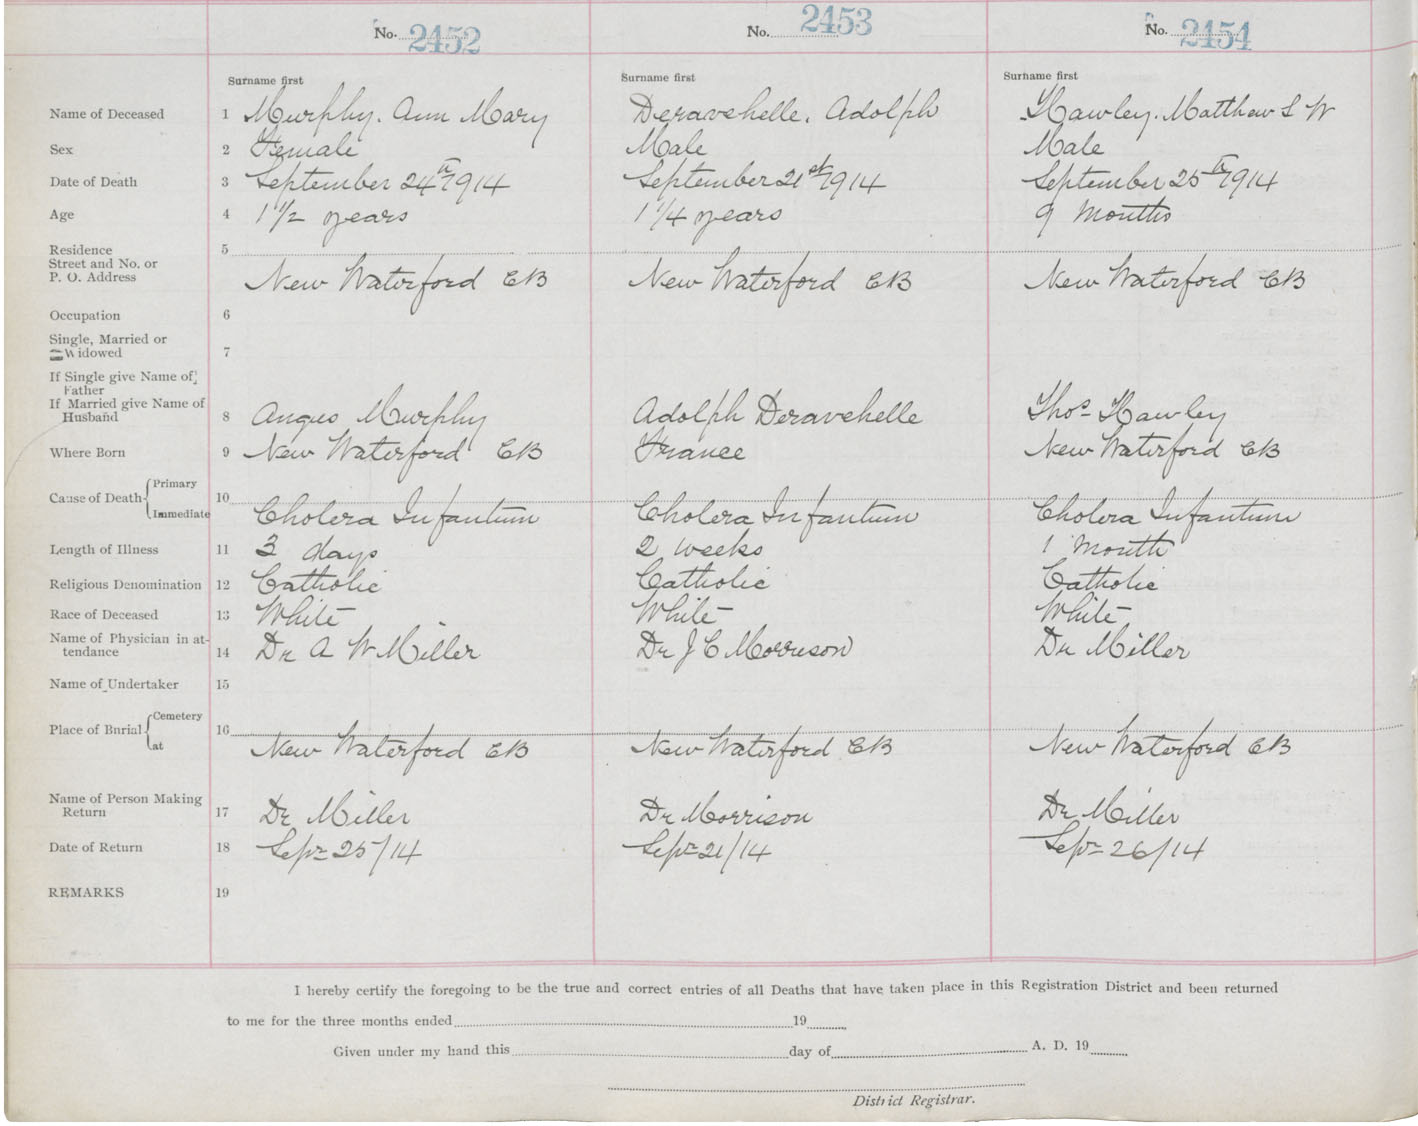 No. 2452 No. 2453 No. 2454
Surname first Surname first Surname first
Name of Deceased 1 Murphy. Ann Mary Deravehelle. Adolph Hawley. Matthew S W
Sex 2 Female Male Male
Date of Death 3 September 24th 1914 September 21st 1914 September 25th 1914
Age 4 1 1/2 years 1 1/4 years 9 Months
Residence 5
Street and No. or
P. O. Address New Waterford CB New Waterford CB New Waterford CB
Occupation 6
Single, Married or
Widowed 7
If Single give Name of
Father
If Married give Name of
Husband 8 Angus Murphy Adolph Deravehelle Thos Hawley
Where Born 9 New Waterford CB France New Waterford CB
Primary
Cause of Death 10
Immediate Cholera Infantum Cholera Infantum Cholera Infantum
Length of Illness 11 3 days 2 weeks 1 Month
Religious Denomination 12 Catholic Catholic Catholic
Race of Deceased 13 White White White
Name of Physician in at-
tendance 14 Dr A W Miller Dr J C Morrison Dr Miller
Name of Undertaker 15
Cemetery
Place of Burial 16
at New Waterford CB New Waterford CB New Waterford CB
Name of Person Making
Return 17 Dr Miller Dr Morrison Dr Miller
Date of Return 18 Sepr 25/14 Sepr 21/14 Sepr 26/14
REMARKS 19
I hereby certify the foregoing to be the true and correct entries of all Deaths that have taken place in this Registration District and been returned
to me for the three months ended 19
Given under my hand this day of A. D. 19
District Registrar.